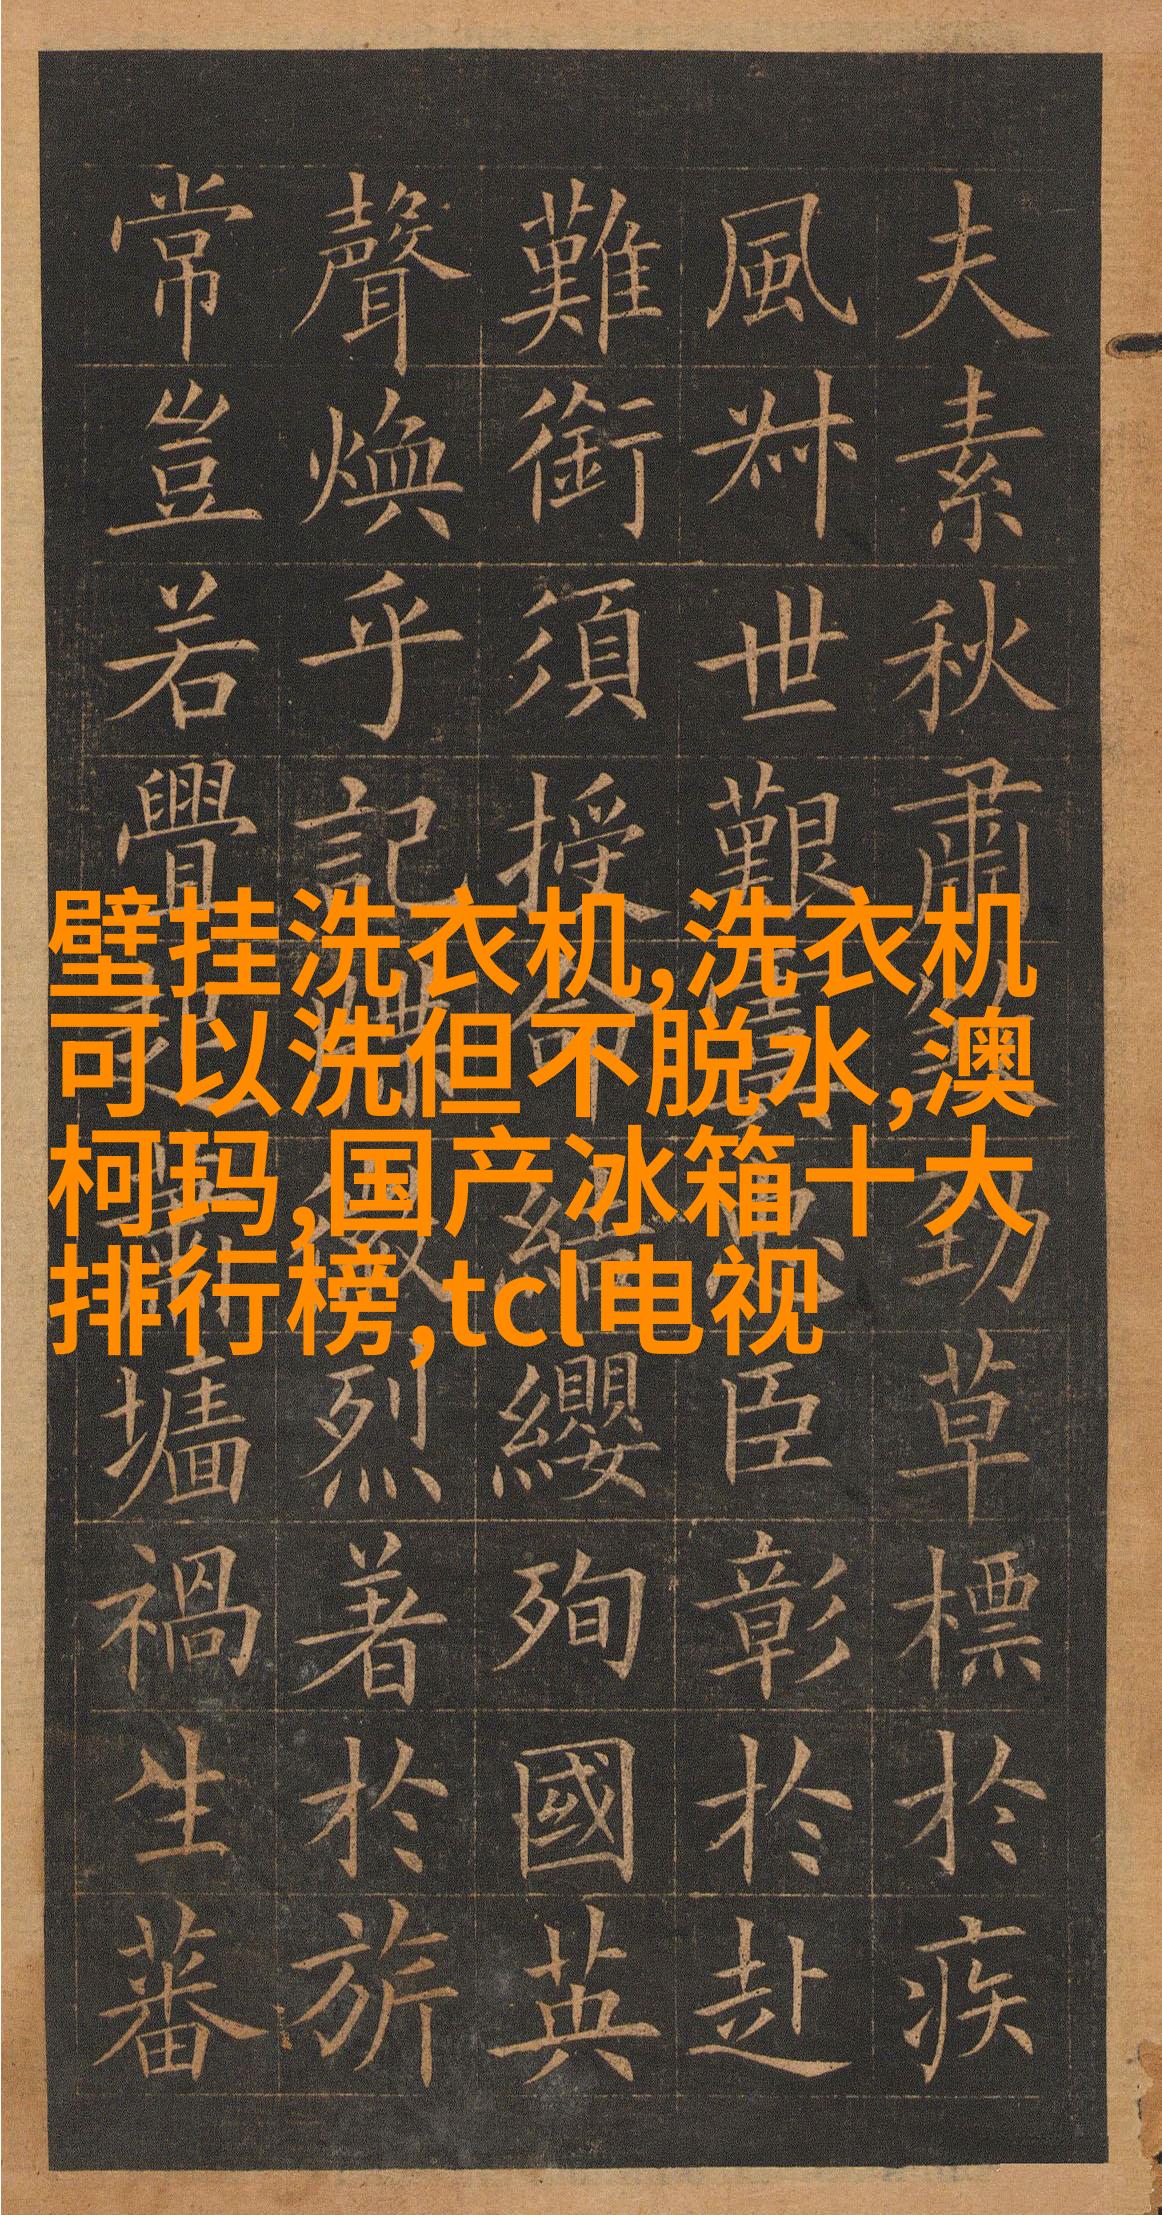 夫素秋肅煞勁草標於疾
風叔世艱虞忠臣彰於赴
難銜須授命結纓殉國英
聲煥乎記牒徽烈著於旂
常豈若舋起蕭墻禍生蕃
壁挂洗衣机,洗衣机
可以洗但不脱水,澳
柯玛,国产冰箱十大
排行榜,tcl电视